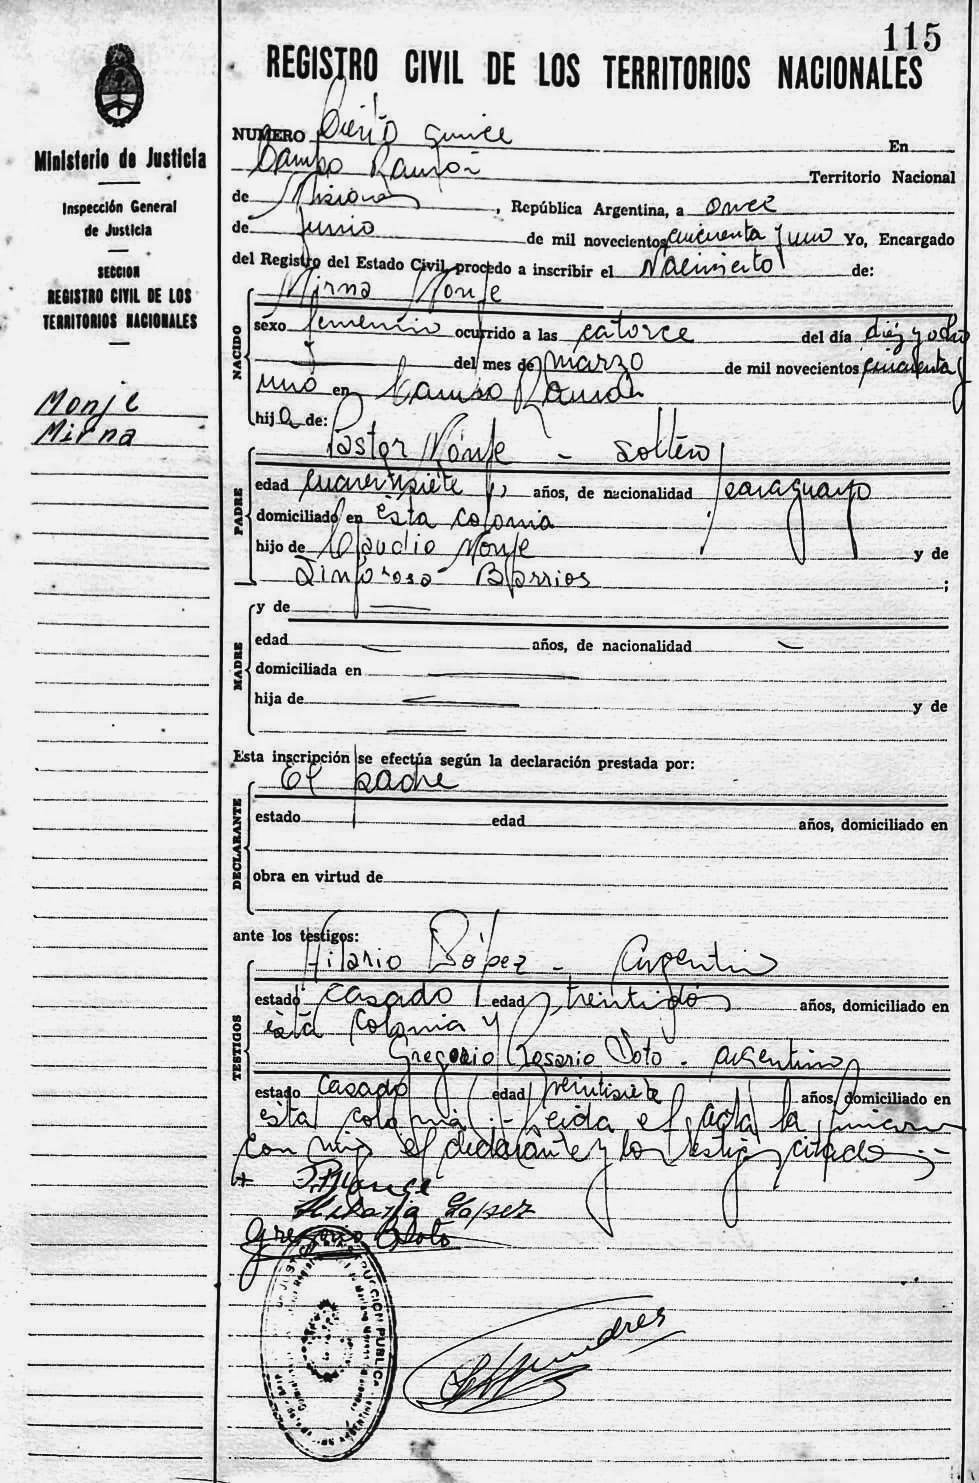 115
REGISTRO CIVIL DE LOS TERRITORIOS NACIONALES
Ministerio de Justicia
Inspección General
de Justicia
SECCION
REGISTRO CIVIL DE LOS
TERRITORIOS NACIONALES
Monje
Mirna
NUMERO Ciento quince En
Campo Ramón Territorio Nacional
de Misiones, República Argentina, a once
de junio de mil novecientos cincuenta y uno Yo, Encargado
del Registro del Estado Civil, procedo a inscribir el Nacimiento de:
NACIDO
Mirna Monje
sexo femenino ocurrido a las catorce del día diez y ocho
del mes de marzo de mil novecientos cincuenta y
uno en Campo Ramón
hija de:
PADRE
Pastor Monje - soltero
edad cuarentisiete años, de nacionalidad paraguayo
domiciliado en ésta colonia
hijo de Claudio Monje y de
Sinforosa Barrios ;
MADRE
y de
edad años, de nacionalidad
domiciliada en
hija de y de
Esta inscripción se efectúa según la declaración prestada por:
El padre
DECLARANTE
estado edad años, domiciliado en
obra en virtud de
ante los testigos:
TESTIGOS
Hilario López - argentino
estado casado edad treintidós años, domiciliado en
ésta colonia y
Gregorio Rosario Soto - argentino
estado casado edad veintisiete años, domiciliado en
ésta colonia - Leida el acta la firmaron
con migo el declarante y los testigos citados
Hilario López
Gregorio Soto